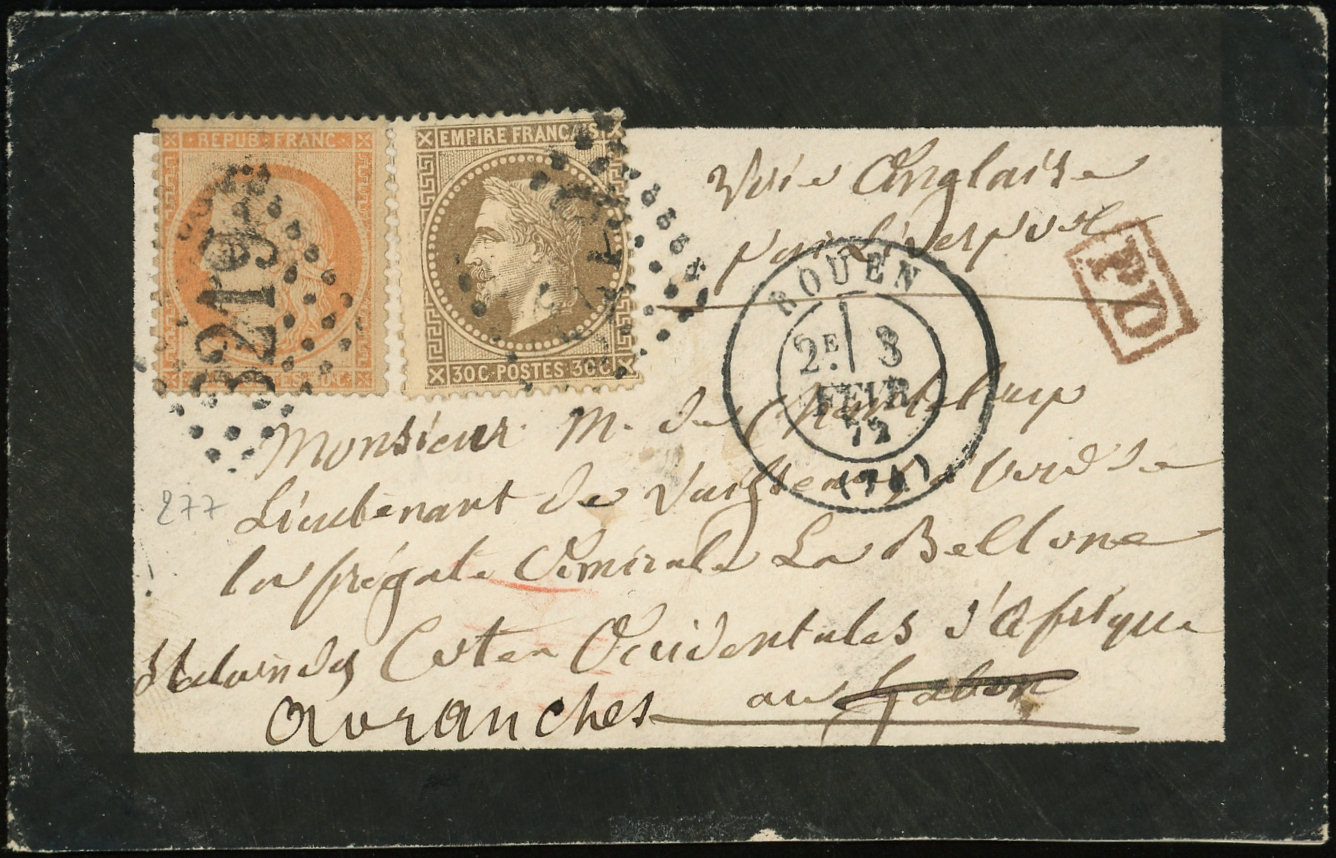 REPUB. FRANC.
EMPIRE FRANÇAIS
30 C. POSTES 30 C.
3219
Voie Anglaise
par Liverpool
PD
ROUEN
2E 3
FEVR
72
(74)
Monsieur M. de Chanteloup
Lieutenant de Vaisseau à bord de
la frégate Amirale La Bellone
277
Station des Côtes Occidentales d'Afrique
au Gabon
Avranches